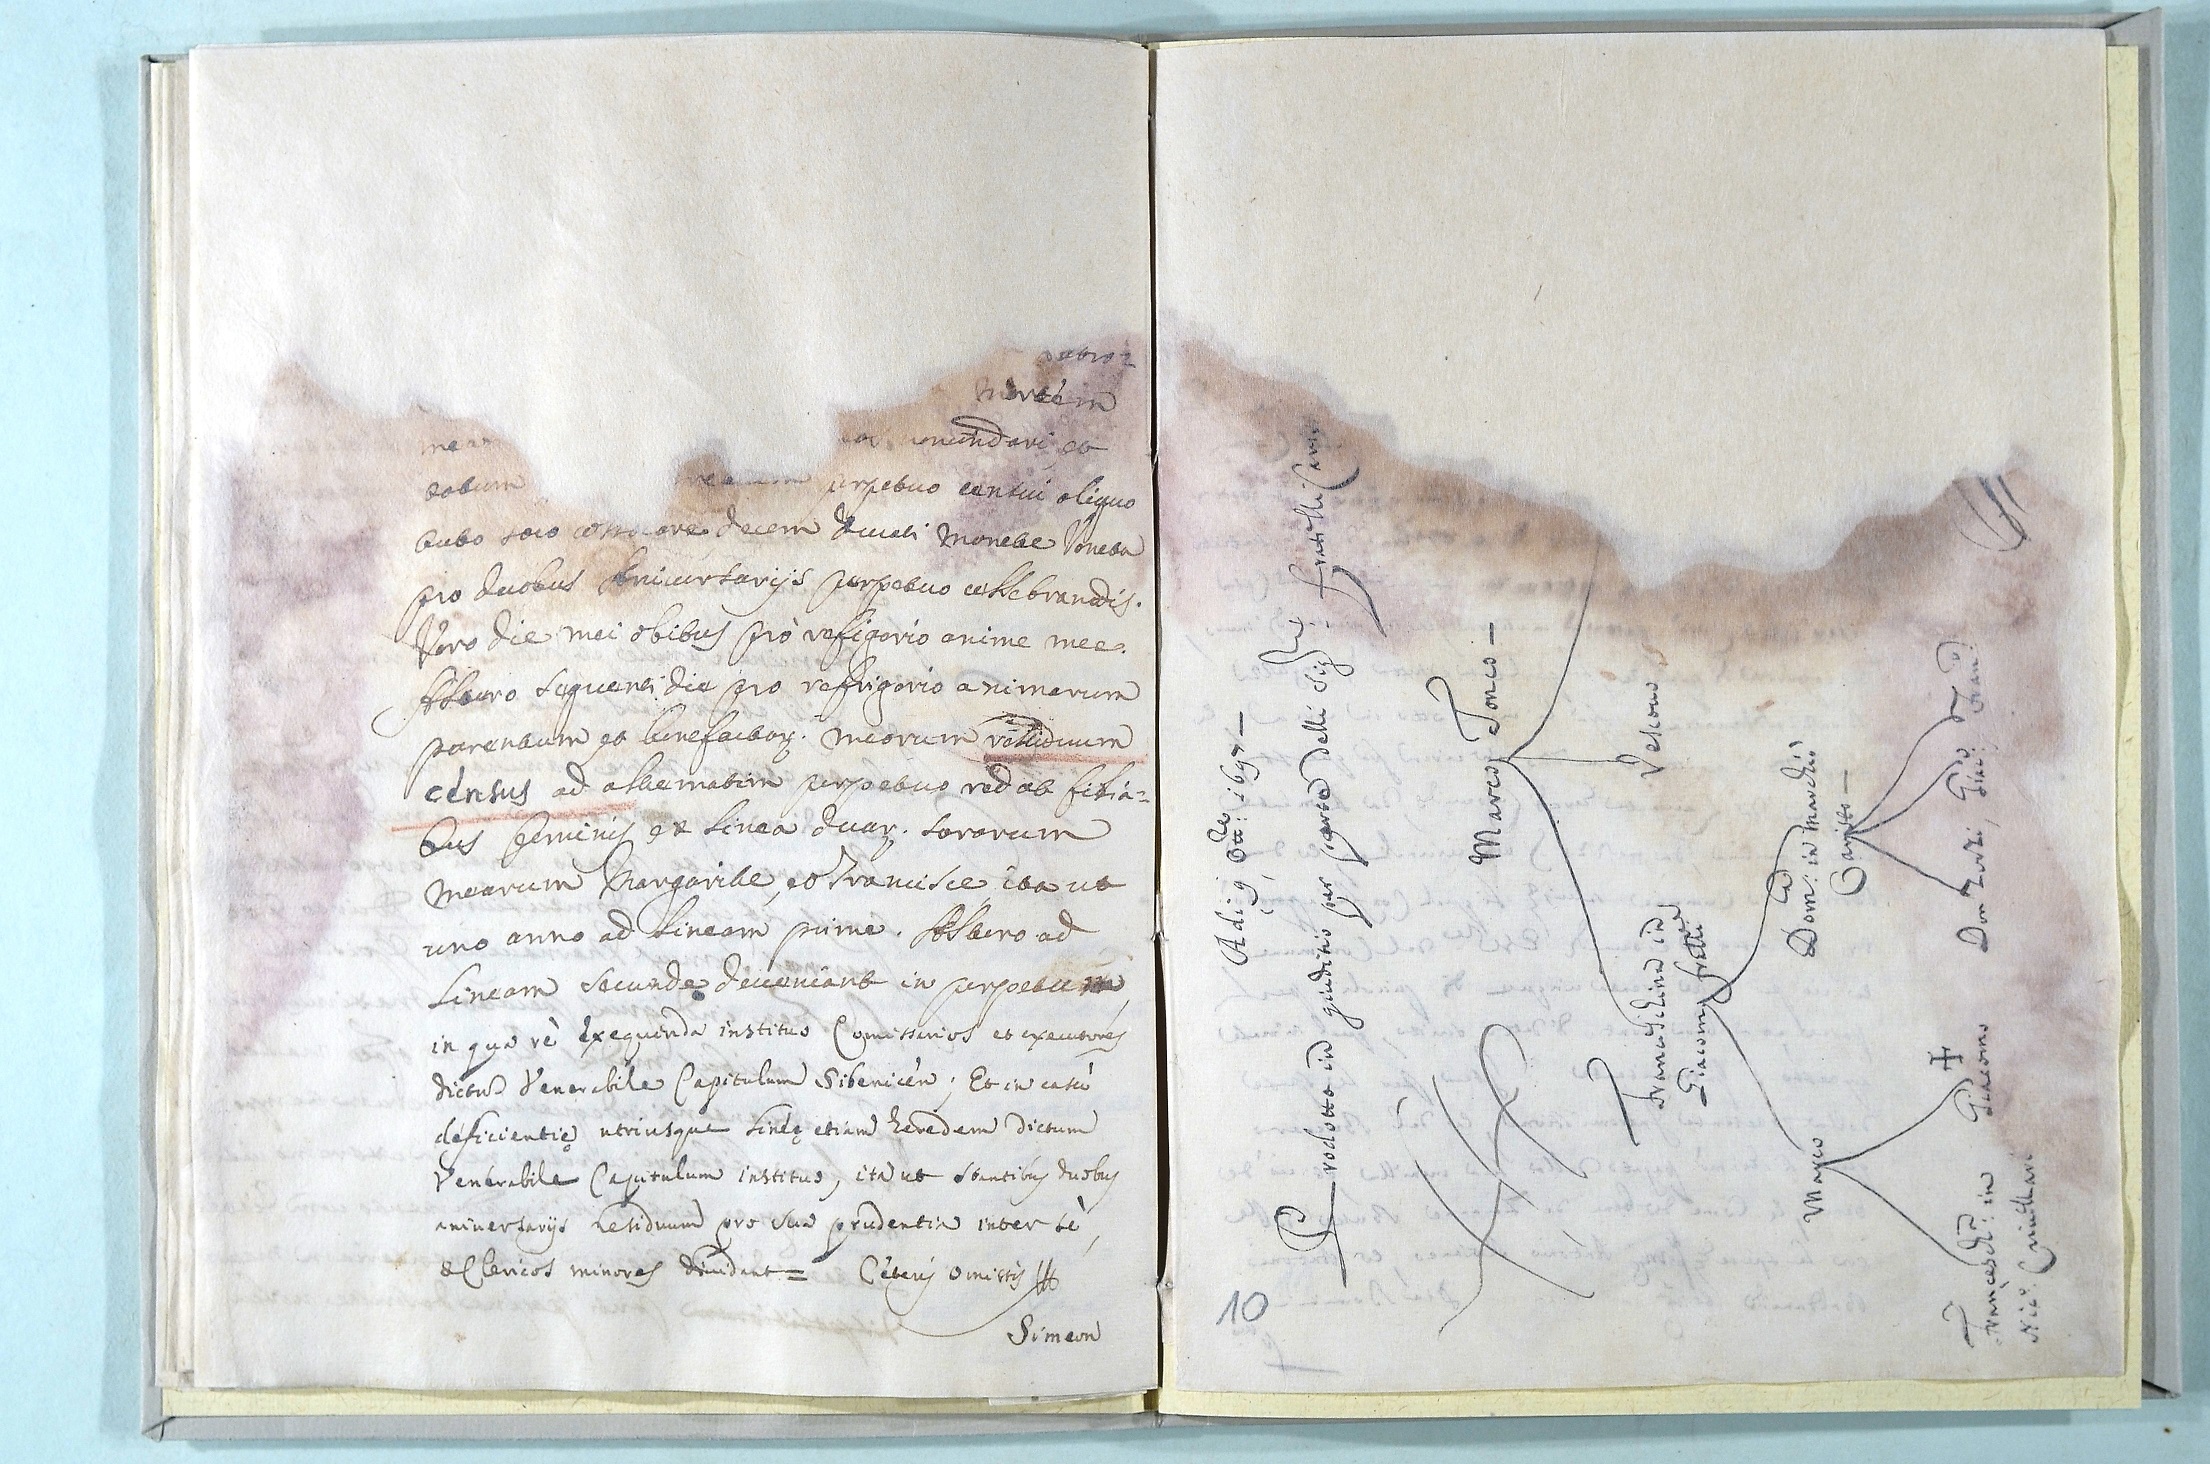 mortem
mea
perpetuo censui aliquo
tuto loco collocare decem ducati monete Veneta
pro duobus Aniversarijs perpetuo cellebrandis.
Vero die mei obitus pro refrigorio anime mee.
Altero sequenti die pro refrigorio animarum
parentum et benefactoꝝ. meorum residuum
census ad alternatim perpetuo redat filia=
bus feminis ex linea duaꝝ. sororum
mearum Margarite, et Francisce, ita ut
uno anno ad lineam prime. Altero ad
lineam secunde deveniant in perpetuum,
in qua re exequenda instituo Comissarios et executores
dictum Venerabile Capitulum Sibenicen; Et in casu
deficientię utriusque lineę etiam heredem dictum
Venerabile Capitulum instituo, ita ut stantibus duobus
aniversarijs residuum pro sua prudentia inter se,
& Clericos minores dividant = Ceteris omissis
Simeon
Adi 9 ottre: 1697 —
Prodotto in giuditio per parte delli Sigri fratelli
Marco Tonco —
Vescovo
Franceschina in
Giacomo fratelli
Domca: in Marchiò
Marco
Don
Giacomo
Francescha: in
10